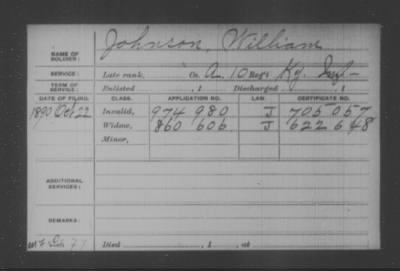 NAME OF SOLDIER: Johnson, William
SERVICE: Late rank, Co. A. 10 Reg't Ky. Inf.
TERM OF SERVICE: Enlisted , 1 Discharged , 1
DATE OF FILING. CLASS. APPLICATION NO. LAW. CERTIFICATE NO.
1890 Oct 22 Invalid, 974 980 J 705 057
Widow, 860 606 J 622 648
Minor,
ADDITIONAL SERVICES:
REMARKS:
Died , 1 , at